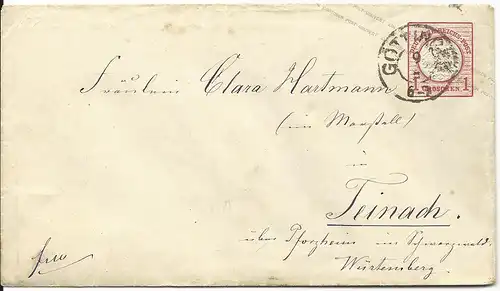 GÖTTINGEN
1 GROSCHEN 1
Fräulein Clara Hartmann
(im Marstall)
in
Teinach.
über Pforzheim im Schwarzwald
Würtemberg.
frco